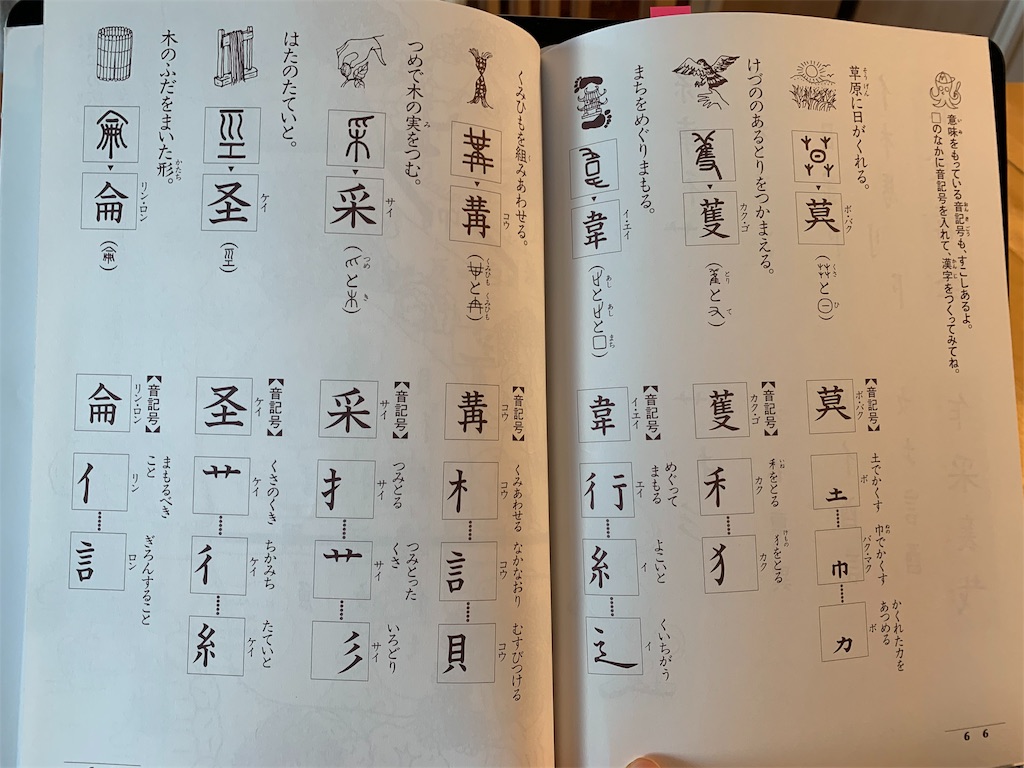 意味をもっている音記号も、すこしあるよ。
□のなかに音記号を入れて、漢字をつくってみてね。
草原に日がくれる。
莫
ボ・バク
(と)
くさ
ひ
【音記号】
莫
ボ・バク
土
土でかくす
ボ
巾
巾でかくす
バク・マク
力
かくれた力を
あつめる
ボ
けづののあるとりをつかまえる。
蒦
カク・ゴ
(と)
とり
て
【音記号】
蒦
カク・ゴ
禾
禾をとる
カク
犭
犭をとる
カク
まちをめぐりまもる。
韋
イ・エイ
(とと)
あし
あし
まち
【音記号】
韋
イ・エイ
行
めぐって
まもる
エイ
糸
よこいと
イ
辶
くいちがう
イ
66
くみひもを組みあわせる。
冓
コウ
(と)
くみひも
くみひも
【音記号】
冓
コウ
木
くみあわせる
コウ
言
なかなおり
コウ
貝
むすびつける
コウ
つめで木の実をつむ。
采
サイ
(と)
つめ
き
【音記号】
采
サイ
扌
つみとる
サイ
艹
つみとった
くさ
サイ
彡
いろどり
サイ
はたのたていと。
圣
ケイ
【音記号】
圣
ケイ
艹
くさのくき
ケイ
彳
ちかみち
ケイ
糸
たていと
ケイ
木のふだをまいた形。
侖
リン・ロン
【音記号】
侖
リン・ロン
亻
まもるべき
こと
リン
言
ぎろんすること
ロン